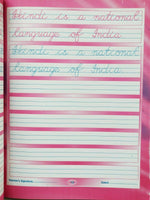 Hindi is a national
language of India
Hindi is a national
language of India
Teacher's Signature
Date